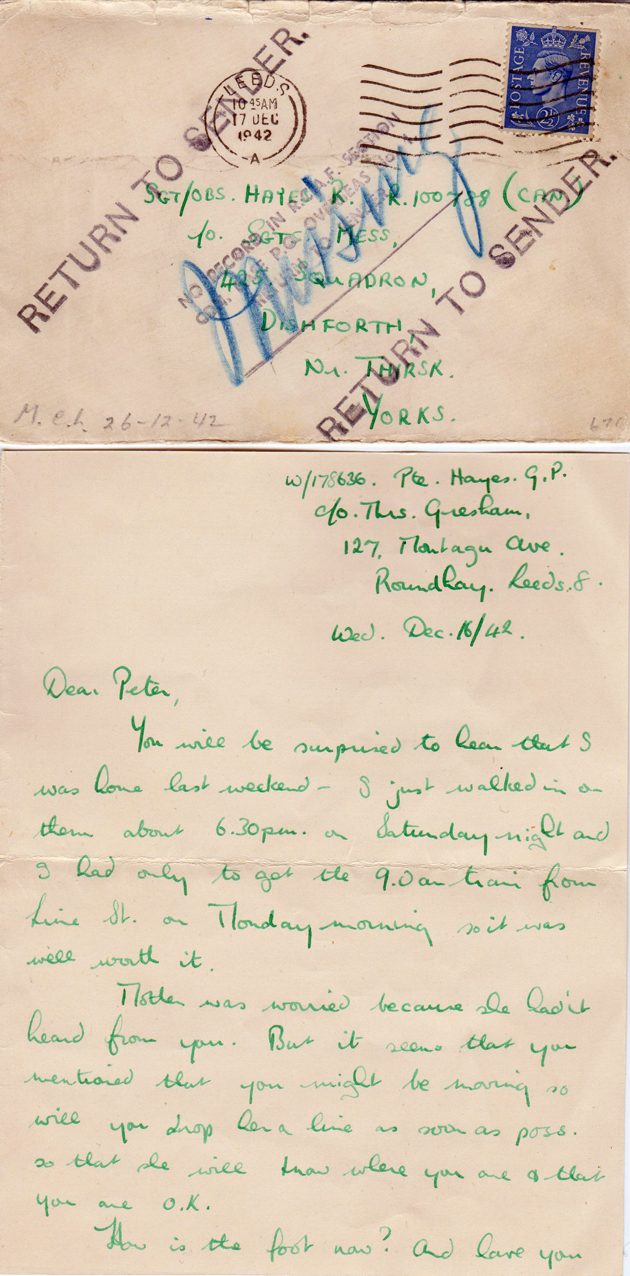 RETURN TO SENDER.
LEEDS
10 45AM
17 DEC
1942
A
POSTAGE REVENUE
2½D
Missing
NO RECORD IN R.C.A.F. SECTION
RETURN TO SENDER.
SGT/OBS. HAYES R. P. R.100788 (CAN)
c/o. SGTS MESS,
425. SQUADRON,
DISHFORTH,
Nr. THIRSK.
YORKS.
M.C.L. 26-12-42
W/178636. Pte. Hayes. G.P.
c/o. Mrs. Gresham,
127, Montagu Ave.
Roundhay. Leeds.8.
Wed. Dec. 16/42.
Dear Peter,
You will be surprised to hear that I
was home last weekend - I just walked in on
them about 6.30pm. on Saturday night and
I had only to get the 9.0am train from
Lime St. on Monday morning so it was
well worth it.
Mother was worried because she hadn't
heard from you. But it seems that you
mentioned that you might be moving so
will you drop her a line as soon as poss.
so that she will know where you are & that
you are O.K.
How is the foot now? And have you